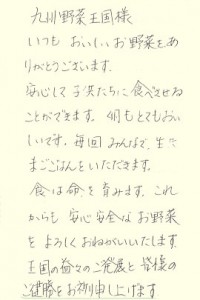 九州野菜王国様
いつも おいしいお野菜をあ
りがとうございます。
安心して子供たちに食べさせる
ことができます。卵もとてもおい
しいです。毎回みんなで、生で
まごごはんをいただきます。
食は命を育みます。これ
からも安心安全なお野菜
をよろしくおねがいいたします。
王国の益々のご発展と皆様の
ご健勝をお祈り申し上げます